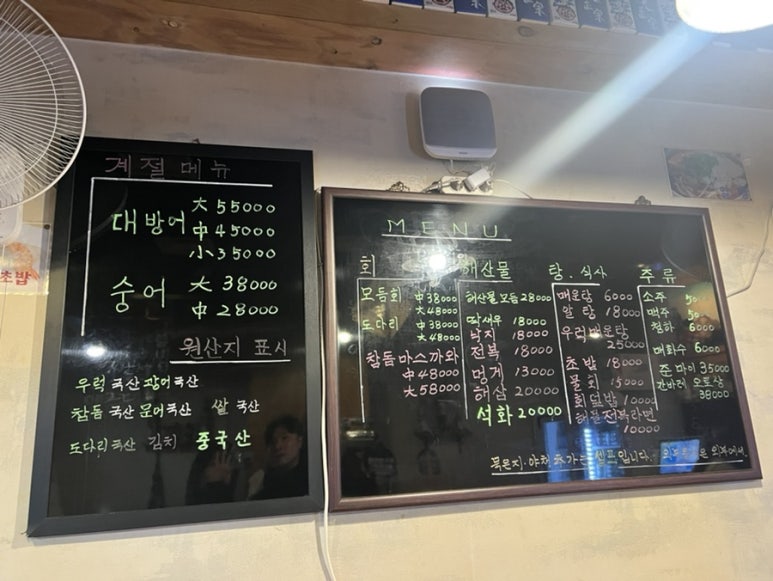 계절메뉴
대방어 大 55000
中 45000
小 35000
숭어 大 38000
中 28000
원산지 표시
우럭 국산 광어 국산
참돔 국산 문어 국산 쌀 국산
도다리 국산 김치 중국산
초밥
MENU
회
모듬회 中 38000
大 48000
도다리 中 38000
大 48000
참돔 마스까와
中 48000
大 58000
해산물
해산물 모듬 28000
딱새우 18000
낙지 18000
전복 18000
멍게 13000
해삼 20000
석화 20000
탕.식사
매운탕 6000
알탕 18000
우럭매운탕
25000
초밥 18000
물회 15000
회덮밥 10000
해물전복라면
10000
주류
소주
맥주
청하 6000
매화수 6000
준마이 35000
간바레 오또상
38000
묵은지.야채 추가는 셀프입니다.